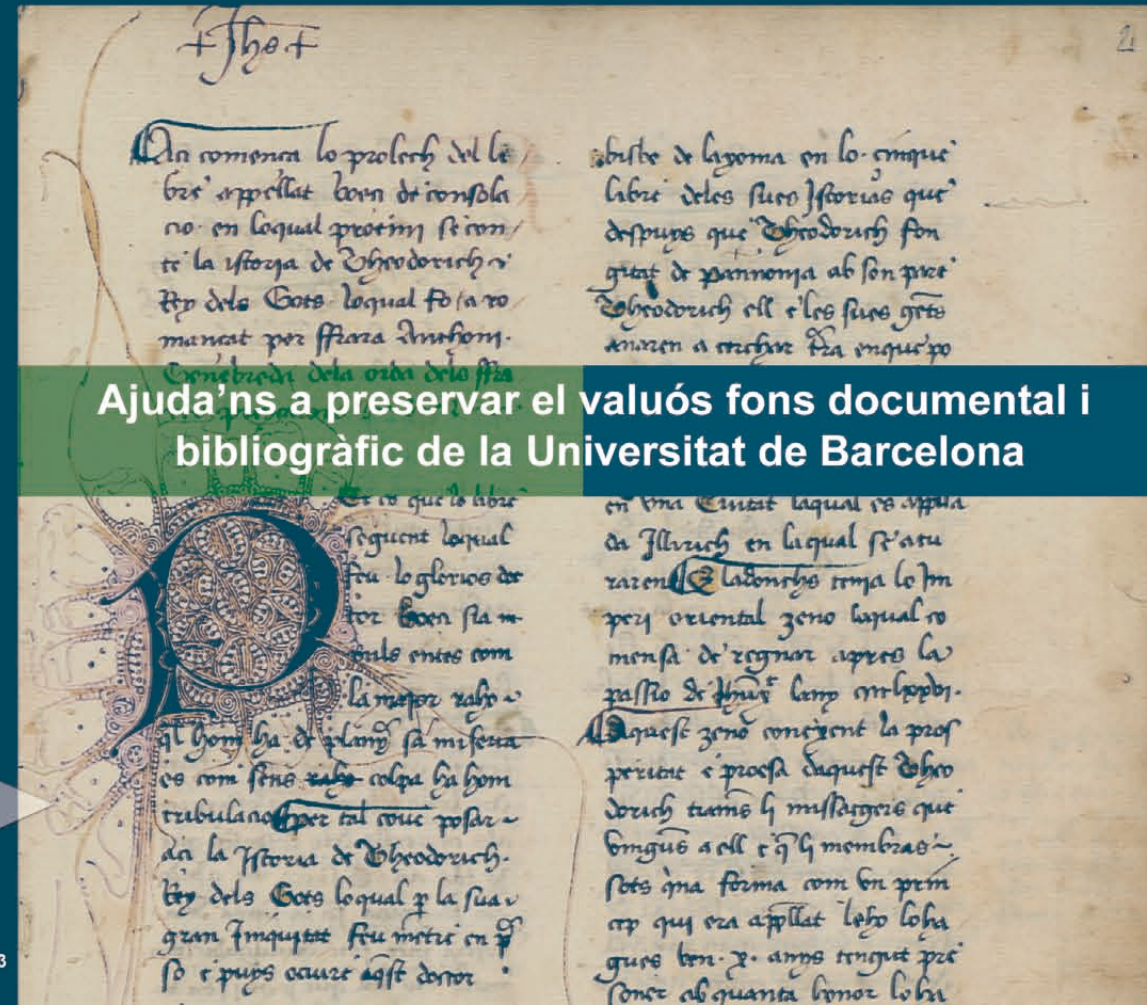 + Jhs +
2
Aci comença lo prolech del li
bre appellat boeci de consola
cio en loqual prohemi se con
te la istoria de Theodorich
Rey dels Gots loqual fo a ro
mançat per ffrara Anthoni
Genebreda dela orda dels ffra
Ajuda’ns a preservar el valuós fons documental i
bibliogràfic de la Universitat de Barcelona
Per ço que lo libre
seguent loqual
feu lo glorios doc
tor boeci sia m
mils entes com
la major raho
ql hom ha de plany sa miseria
es com sens raho colpa ha hom
tribulacio per tal covē posar
aci la Istoria de Theodorich
Rey dels Gots loqual p la sua
gran Iniquitat feu metre en p
so e puys ociure aqst doctor
bisbe de layoma en lo cinque
libre deles sues Istorias que
despuys que Theodorich fon
gitat de pannonia ab son pare
Theodorich ell e les sues gēts
anaren a cerchar tra en que po
en vna Ciutat laqual es appella
da Illirich en laqual se atu
raren E ladonchs tenia lo Im
peri oriental zeno laqual co
mensa de regnar apres la
passio de lany
Aquest zeno conexent la pros
peritat e proesa daquest Theo
dorich trams li missatgers que
vingues a ell e q li membras
sots qna forma com vn prin
cep qui era apellat leho loha
gues ben x anys tengut pre
soner ab quanta honor loha
3